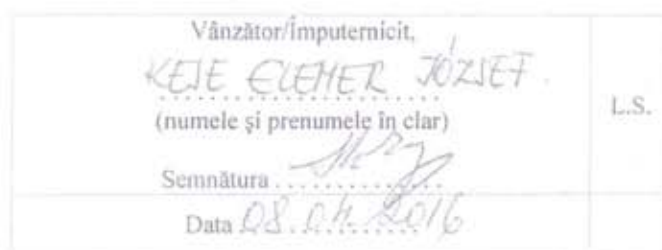 Vânzător/Împuternicit,
KEJE ELEMER JÓZSEF.
(numele şi prenumele în clar)
L.S.
Semnătura
Data 08.04.2016